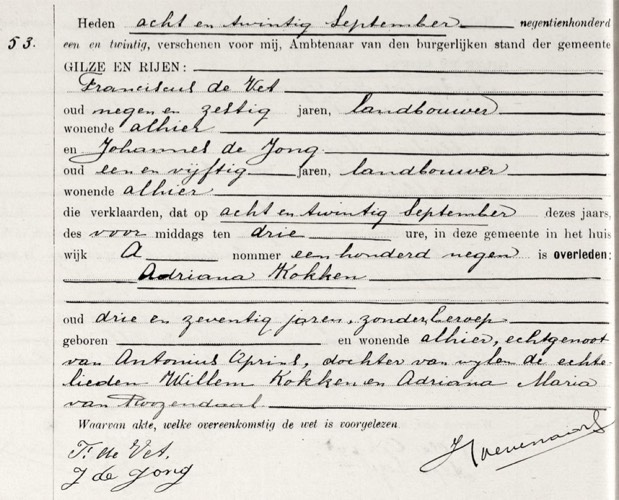 Heden acht en twintig September negentienhonderd
53. een en twintig, verschenen voor mij, Ambtenaar van den burgerlijken stand der gemeente
GILZE EN RIJEN:
Franciscus de Vet
oud negen en zestig jaren, landbouwer
wonende alhier
en Johannes de Jong
oud een en vijftig jaren, landbouwer
wonende alhier
die verklaarden, dat op acht en twintig September dezes jaars,
des voor middags ten drie ure, in deze gemeente in het huis
wijk A nommer een honderd negen is overleden:
Adriana Kokken
oud drie en zeventig jaren, zonder beroep
geboren en wonende alhier, echtgenoot
van Antonius Oprins, dochter van wylen de echte-
lieden Willem Kokken en Adriana Maria
van
Waarvan akte, welke overeenkomstig de wet is voorgelezen
F. de Vet.
J de Jong